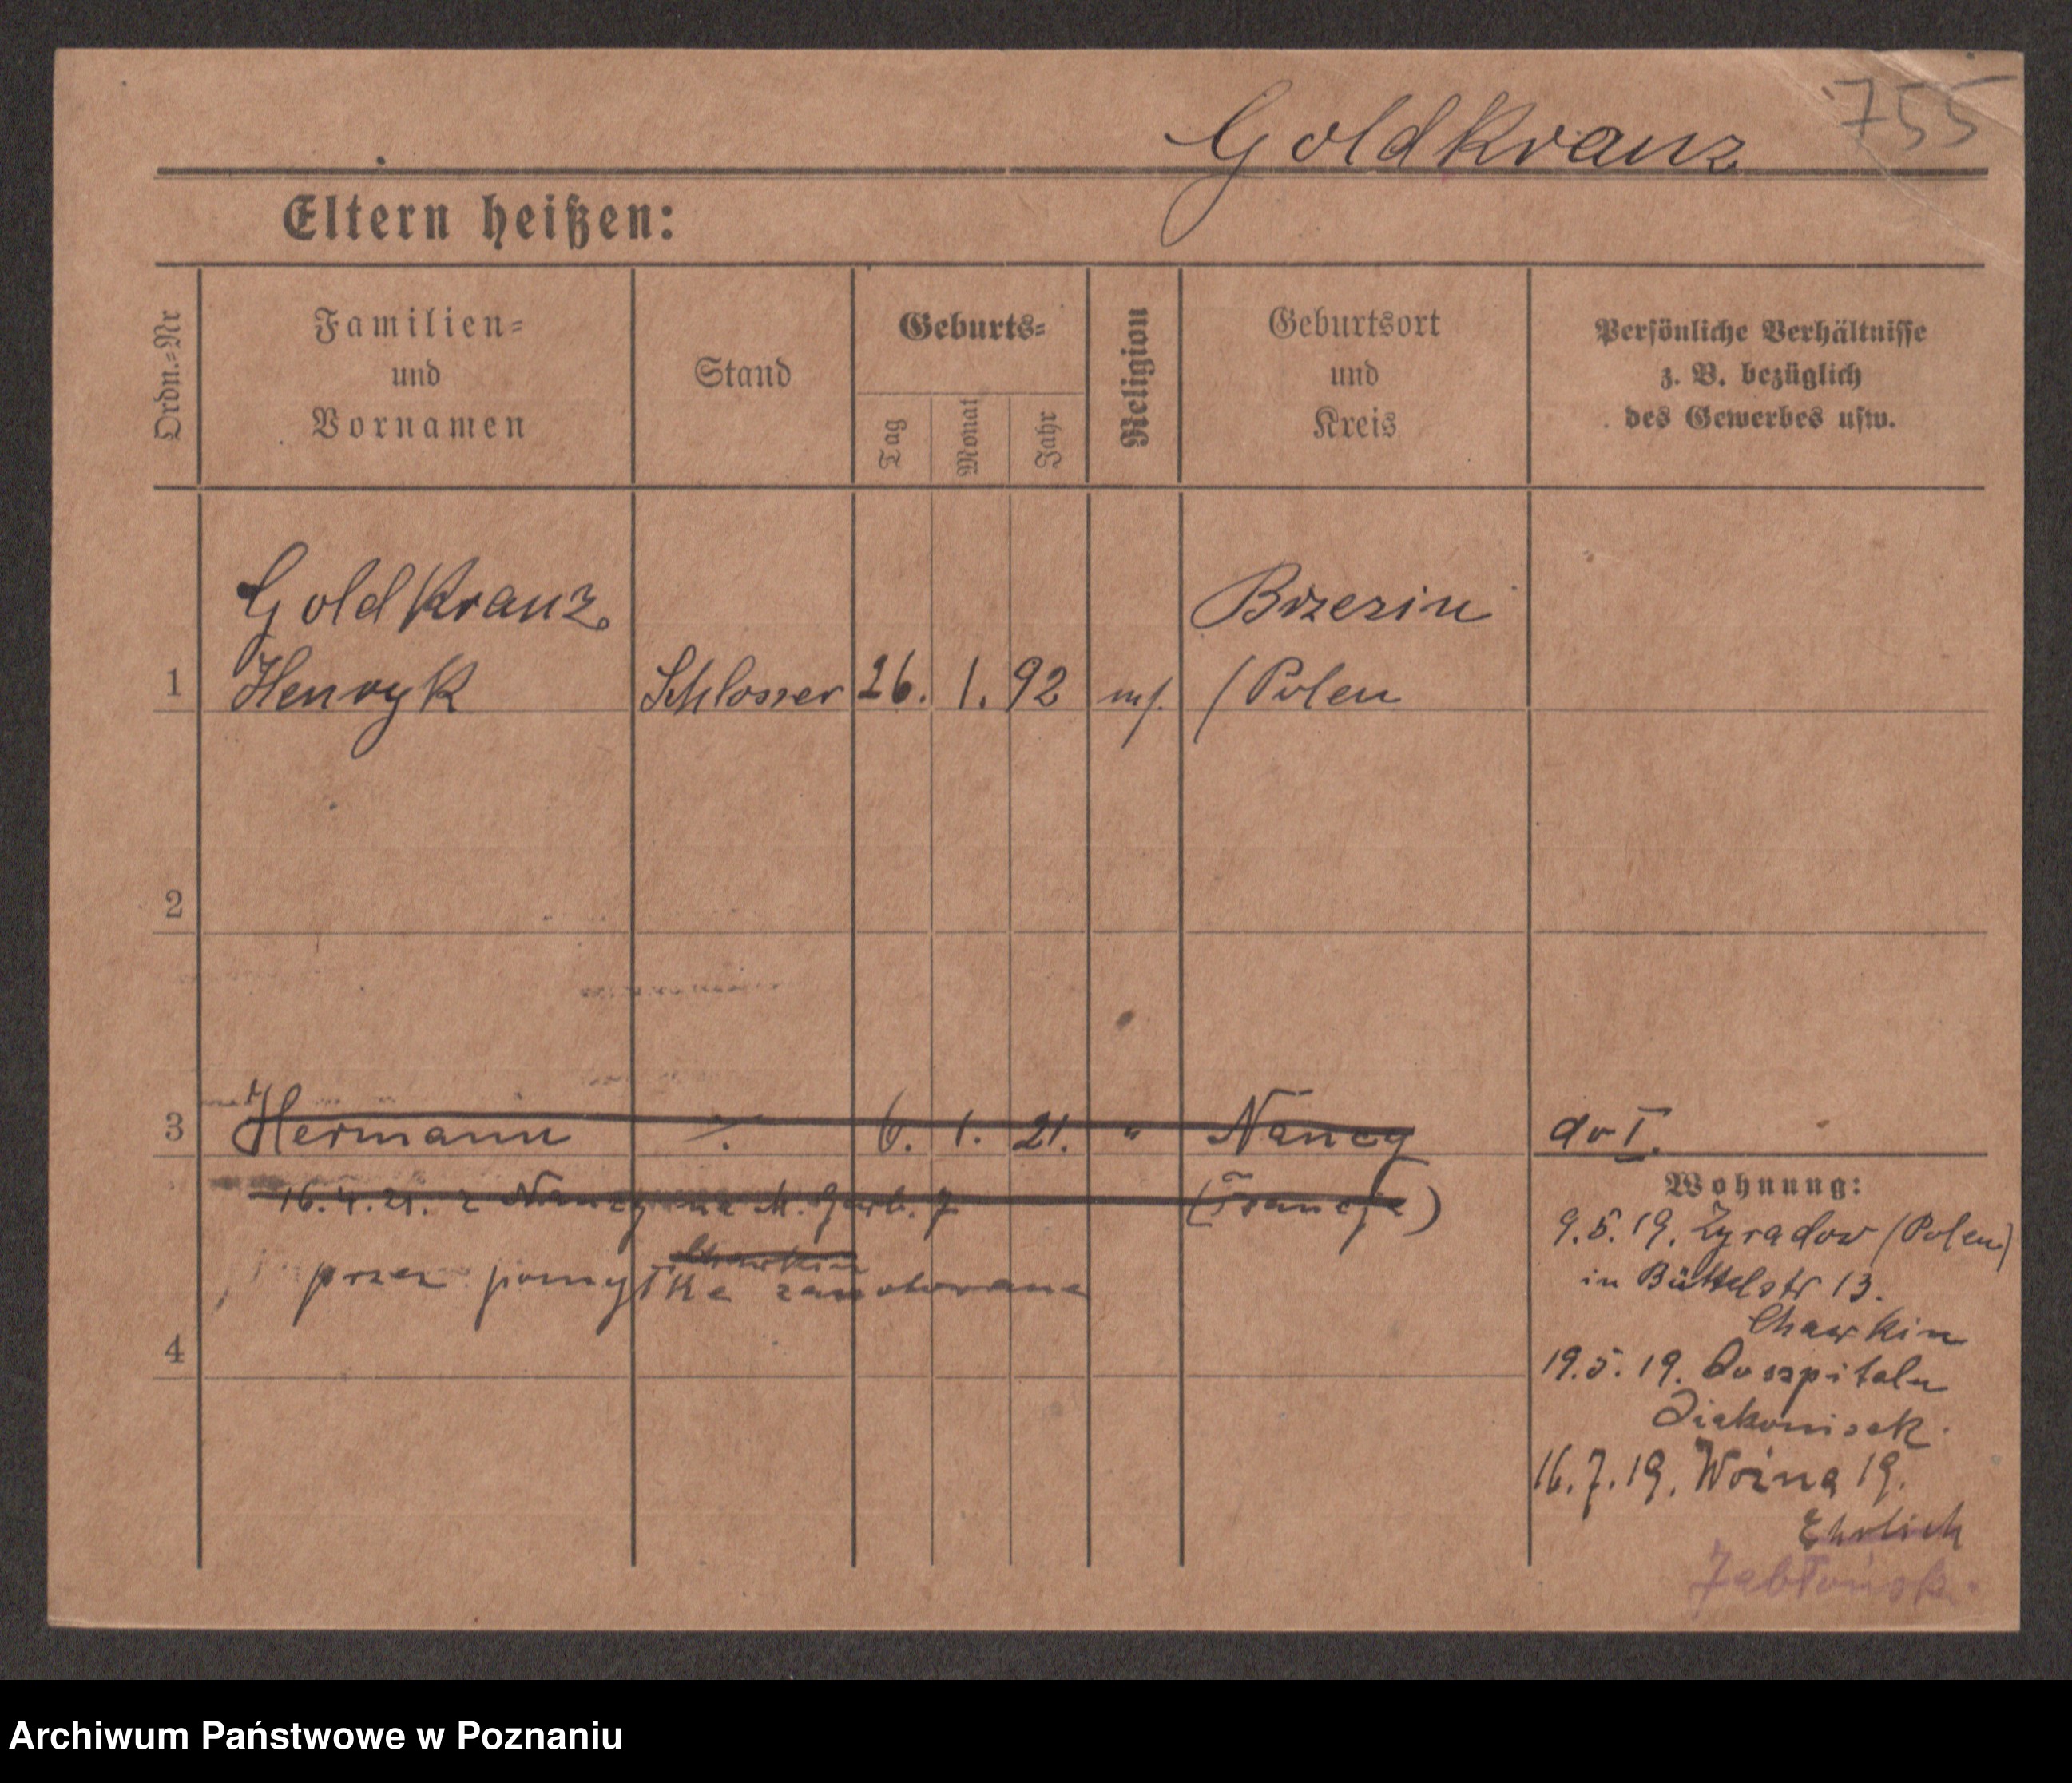 755
Goldkranz
Eltern heißen:
Ordn.=Nr
Familien=
und
Vornamen
Stand
Geburts=
Tag
Monat
Jahr
Religion
Geburtsort
und
Kreis
Persönliche Verhältnisse
z. B. bezüglich
des Gewerbes usw.
Goldkranz
Brzezin
1 Henryk Schlosser 26. 1. 92 mf. (Polen
2
3 Hermann 6. 1. 21. " Nancy do I.
16.4.21. z Nancy na M. Garb. 7 (Francja)
Chawkin
przez pomyłkę zanotowane
4
Wohnung:
9.5.19. Zyradow (Polen)
in Büttelstr 13.
Chawkin
19.5.19. Do szpitala
Diakonisek.
16.7.19. Woźna 19.
Ehrlich
Archiwum Państwowe w Poznaniu